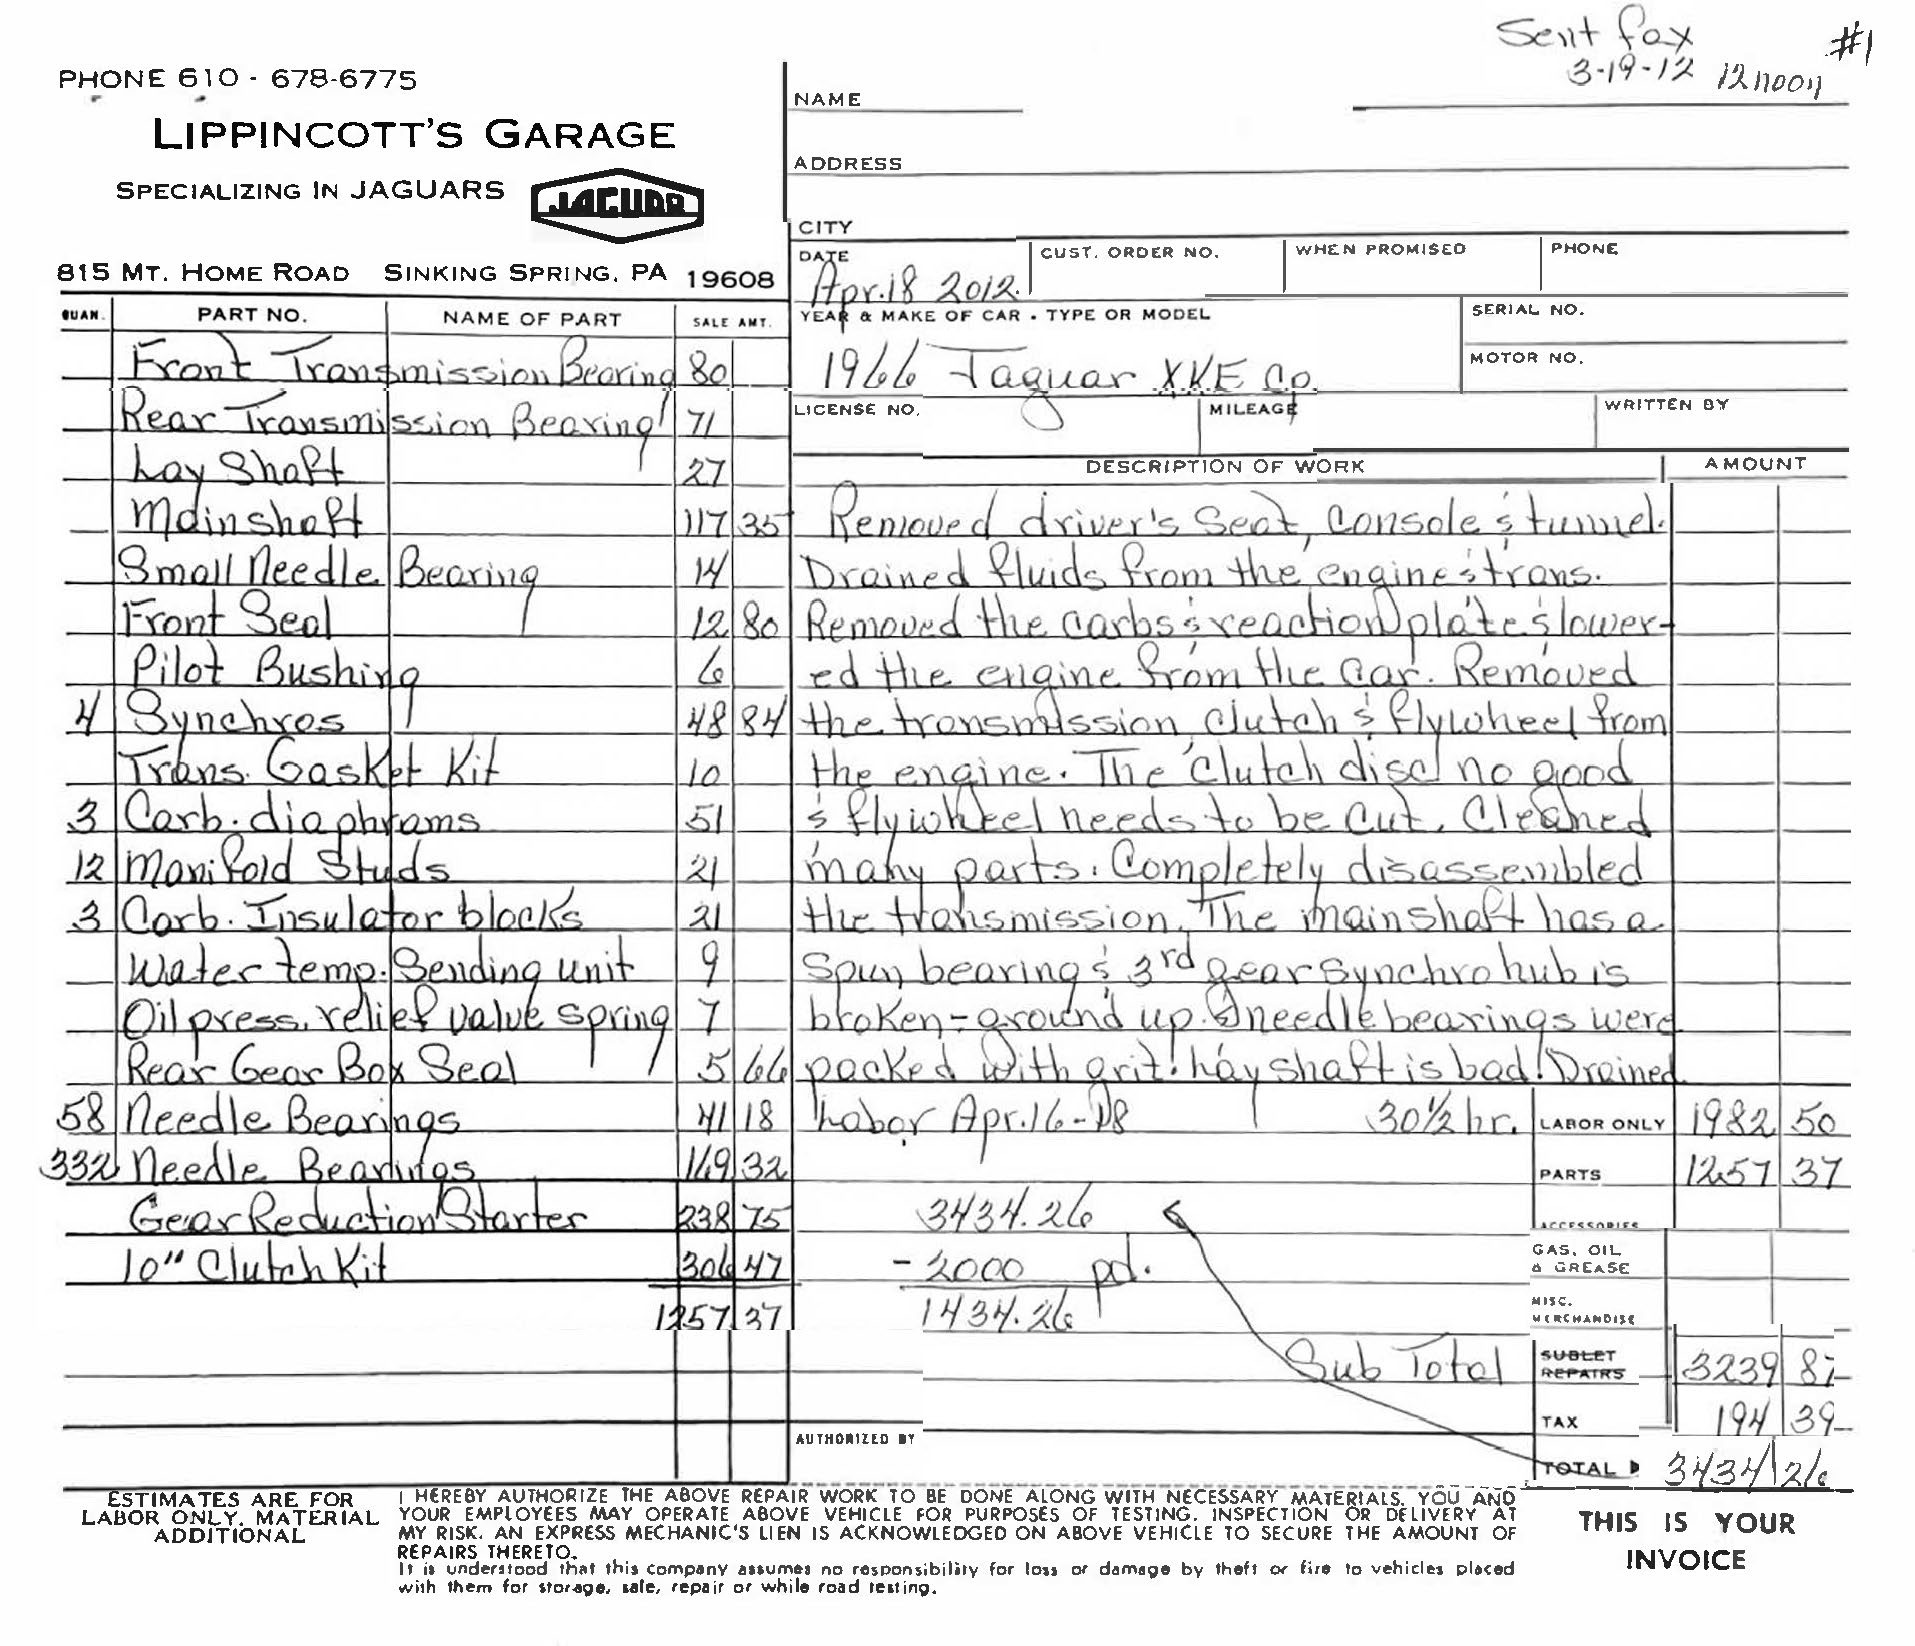 Sent fax #1
3-19-12 12 noon
PHONE 610 - 678-6775
LIPPINCOTT'S GARAGE
SPECIALIZING IN JAGUARS JAGUAR
815 MT. HOME ROAD SINKING SPRING, PA 19608
NAME
ADDRESS
CITY
DATE CUST. ORDER NO. WHEN PROMISED PHONE
Apr. 18 2012.
YEAR & MAKE OF CAR - TYPE OR MODEL SERIAL NO.
1966 Jaguar XKE Co. MOTOR NO.
LICENSE NO. MILEAGE WRITTEN BY
QUAN. PART NO. NAME OF PART SALE AMT.
Front Transmission Bearing 80
Rear Transmission Bearing 71
Lay Shaft 27
Mainshaft 117 35
Small Needle Bearing 14
Front Seal 12 80
Pilot Bushing 6
4 Synchros 48 84
Trans. Gasket Kit 10
3 Carb. diaphrams 51
12 Manifold Studs 21
3 Carb. Insulator blocks 21
Water temp. Sending unit 9
Oil press. relief valve spring 7
Rear Gear Box Seal 5 66
58 Needle Bearings 41 18
332 Needle Bearings 169 32
Gear Reduction Starter 238 75
10" Clutch Kit 306 47
1257 37
DESCRIPTION OF WORK AMOUNT
Removed driver's Seat, Console & tunnel.
Drained fluids from the engine & trans.
Removed the carbs & reaction plate & lower-
ed the engine from the car. Removed
the transmission, clutch & flywheel from
the engine. The Clutch disc no good
& flywheel needs to be cut. Cleaned
many parts. Completely disassembled
the transmission. The mainshaft has a
Spun bearing & 3rd gear synchro hub is
broken - ground up. needle bearings were
packed with grit. Lay shaft is bad. Drained
Labor Apr. 16-18 30 1/2 hr. LABOR ONLY 1982 50
PARTS 1257 37
3434.26 ACCESSORIES
- 2000 pd. GAS, OIL & GREASE
1434.26 MISC. MERCHANDISE
Sub Total SUBLET REPAIRS 3239 87
TAX 194 39
AUTHORIZED BY
TOTAL 3434 26
ESTIMATES ARE FOR
LABOR ONLY, MATERIAL
ADDITIONAL
I HEREBY AUTHORIZE THE ABOVE REPAIR WORK TO BE DONE ALONG WITH NECESSARY MATERIALS. YOU AND
YOUR EMPLOYEES MAY OPERATE ABOVE VEHICLE FOR PURPOSES OF TESTING, INSPECTION OR DELIVERY AT
MY RISK. AN EXPRESS MECHANIC'S LIEN IS ACKNOWLEDGED ON ABOVE VEHICLE TO SECURE THE AMOUNT OF
REPAIRS THERETO.
It is understood that this company assumes no responsibility for loss or damage by theft or fire to vehicles placed
with them for storage, sale, repair or while road testing.
THIS IS YOUR
INVOICE